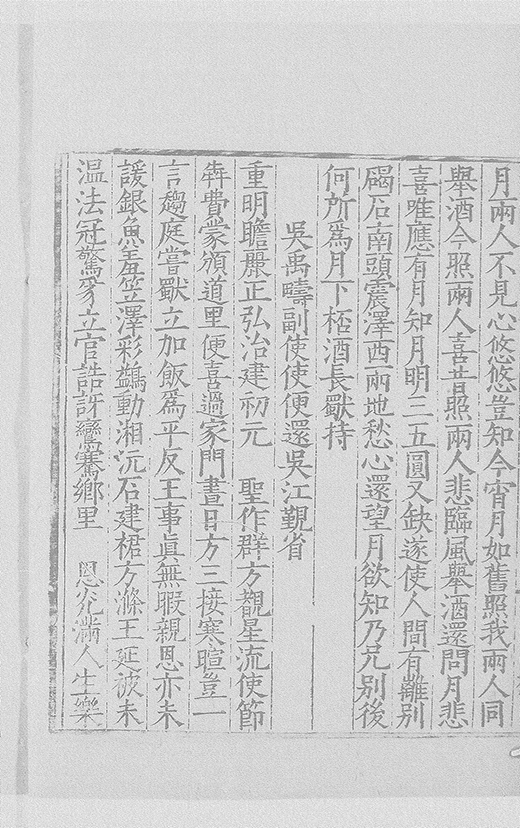 月兩人不見心悠悠豈知今宵月如舊照我兩人同
舉酒今照兩人喜昔照兩人悲臨風舉酒還問月悲
喜唯應有月知月明三五圓又缺遂使人間有離別
碣石南頭震澤西兩地愁心還望月欲知乃兄別後
何所為月下桮酒長獻持
吳禹疇副使使便還吳江覲省
重明瞻麗正弘治建初元　聖作群方覩星流使節
犇費蒙頒道里便喜過家門晝日方三接寒暄豈一
言趨庭嘗獸立加飯為平反王事眞無暇親恩亦未
諼銀魚羞笠澤彩鷁動湘沅石建裙方滌王延被未
溫法冠驚豸立官誥訝鸞騫鄉里　恩光滿人生樂